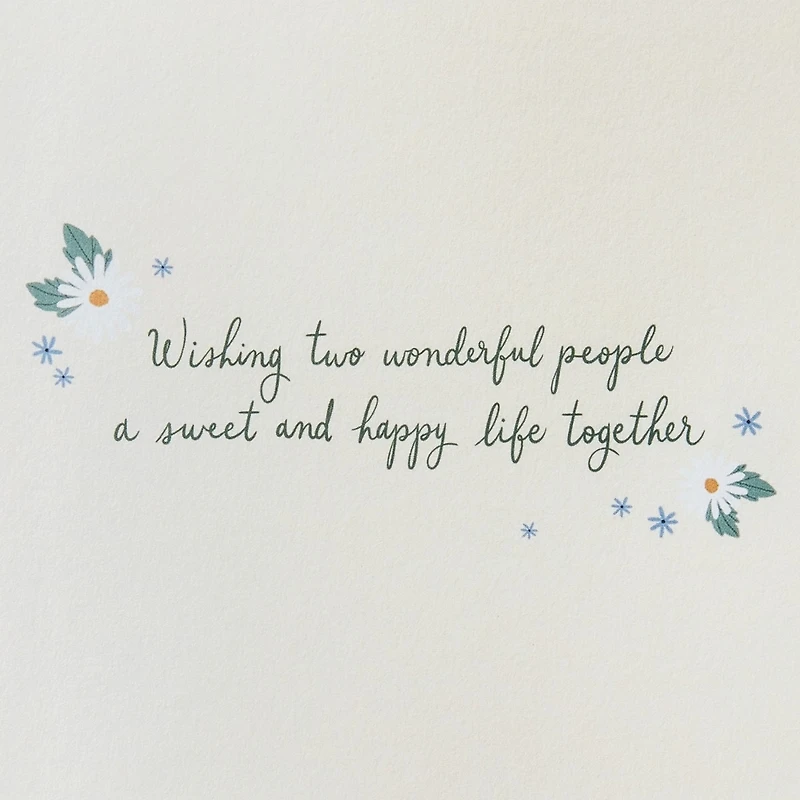 Wishing two wonderful people
a sweet and happy life together